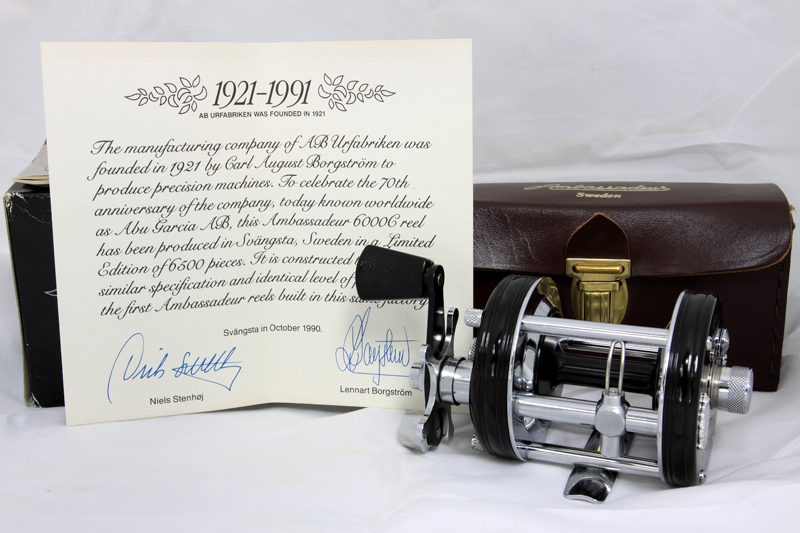 1921-1991
AB URFABRIKEN WAS FOUNDED IN 1921
The manufacturing company of AB Urfabriken was
founded in 1921 by Carl August Borgström to
produce precision machines. To celebrate the 70th
anniversary of the company, today known worldwide
as Abu Garcia AB, this Ambassadeur 6000C reel
has been produced in Svängsta, Sweden in a Limited
Edition of 6500 pieces. It is constructed
similar specification and identical level of
the first Ambassadeur reels built in this same factory
Svängsta in October 1990.
Niels Stenhøj
Lennart Borgström
Ambassadeur
Sweden